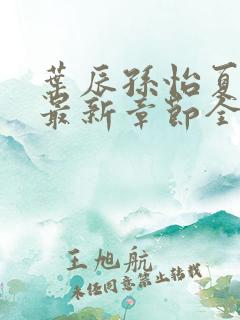 葉辰孫怡夏
最新章節全
王旭航
未经同意禁止转载